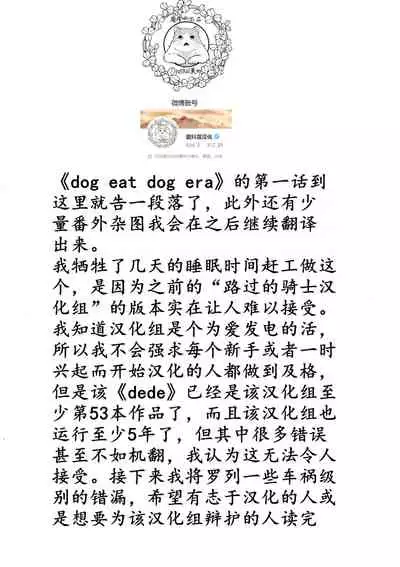 微博账号
《dog eat dog era》的第一话到
这里就告一段落了，此外还有少
量番外杂图我会在之后继续翻译
出来。
我牺牲了几天的睡眠时间赶工做这
个，是因为之前的“路过的骑士汉
化组”的版本实在让人难以接受。
我知道汉化组是个为爱发电的活，
所以我不会强求每个新手或者一时
兴起而开始汉化的人都做到及格，
但是该《dede》已经是该汉化组至
少第53本作品了，而且该汉化组也
运行至少5年了，但其中很多错误
甚至不如机翻，我认为这无法令人
接受。接下来我将罗列一些车祸级
别的错漏，希望有志于汉化的人或
是想要为该汉化组辩护的人读完